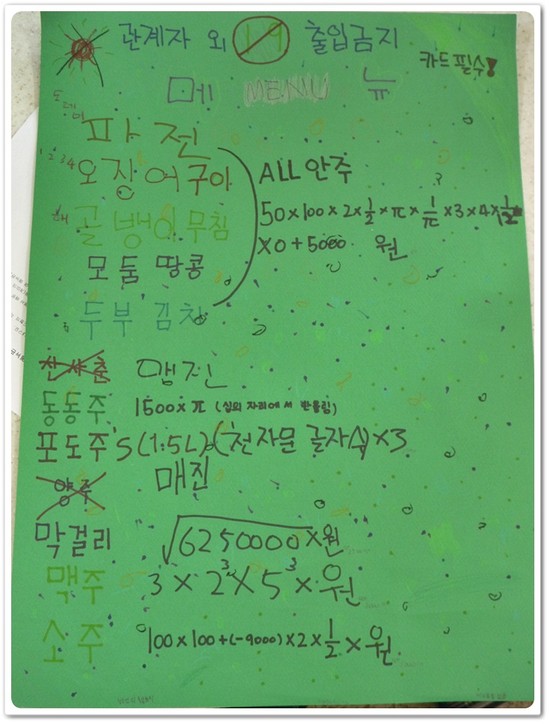 관계자 외 19 출입금지
카드 필수!
메 MENU 뉴
파 전
1 2 3 4 오징어 구이
골뱅이 무침
모둠 땅콩
두부 김치
ALL 안주
50×100×2×1/2×π×1/π×3×4×1/12
×0+5000 원
산사춘 매진
동동주 1500×π (십의 자리에서 반올림)
포도주's (1.5L) (천자문 글자수)×3
양주 매진
막걸리 √6250000×원
맥주 3×2³×5³×원
소주 100×100+(-9000)×2×1/2×원